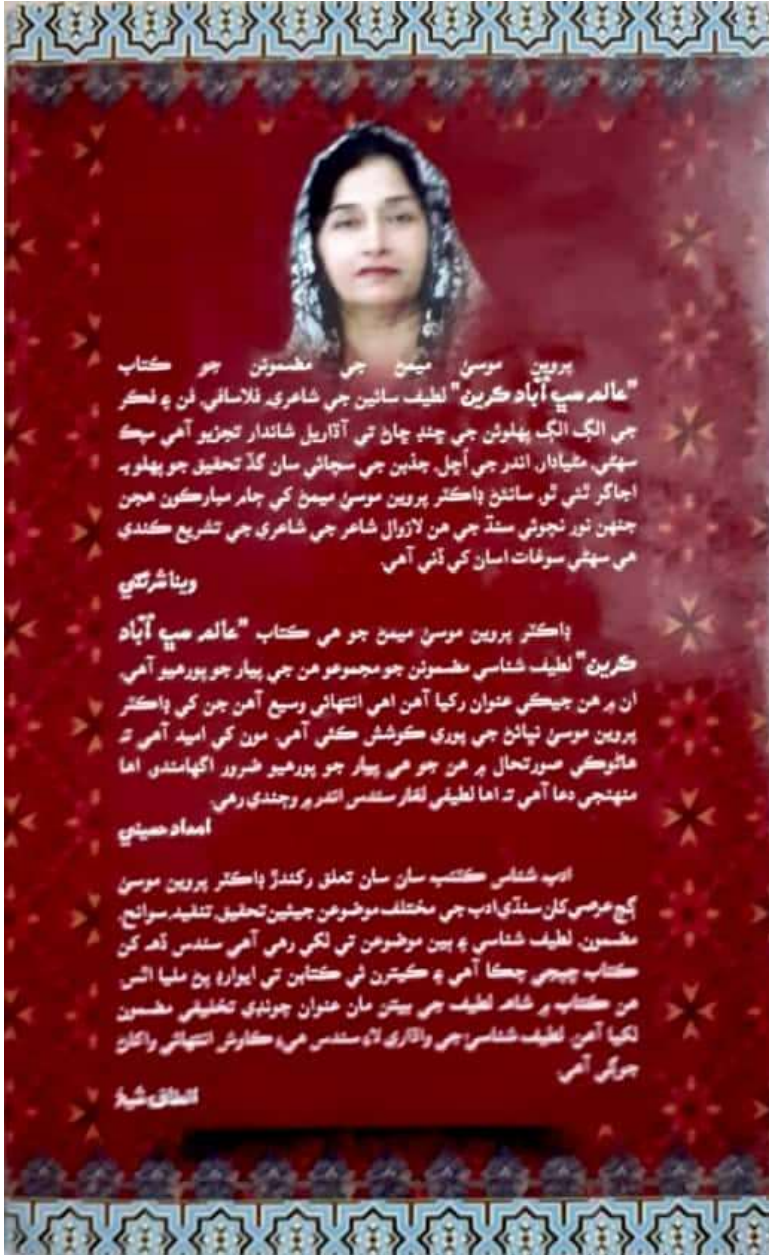 پروين موسيٰ ميمڻ جي مضمونن جو ڪتاب
"عالم سڀ آباد ڪرين" لطيف سائين جي شاعري، فلاسافي، فن ۽ فڪر
جي الڳ الڳ پهلوئن جي ڇنڊ ڇاڻ تي آڌاريل شاندار تجزيو آهي سڀڪ
سهڻي، معياري، اندر جي آڇل، جذبن جي سچائي سان گڏ تحقيق جو پهلو بہ
اجاگر ٿئي ٿو سائڻ ڊاڪٽر پروين موسيٰ ميمڻ کي ڄام مبارڪون هجن
جنهن نور نچوئي سنڌ جي هن لازوال شاعر جي شاعري جي تشريح ڪندي
هي سهڻي سوغات اسان کي ڏني آهي.
وينا شرنگي
ڊاڪٽر پروين موسيٰ ميمڻ جو هي ڪتاب "عالم سڀ آباد
ڪرين" لطيف شناسي مضمونن جو مجموعو هن جي پيار جو پورهيو آهي.
ان ۾ هن جيڪي عنوان رکيا آهن اهي انتهائي وسيع آهن جن کي ڊاڪٽر
پروين موسيٰ نڀائڻ جي پوري ڪوشش ڪئي آهي. مون کي اميد آهي تہ
هاڻوڪي صورتحال ۾ هن جو هي پيار جو پورهيو ضرور اگهامندو. اها
منهنجي دعا آهي تہ اها لطيفي لغار سندس اندر ۾ وڄندي رهي.
امداد حسيني
ادب شناس ڪٽنب سان سان تعلق رکندڙ ڊاڪٽر پروين موسيٰ
ڳچ عرصي کان سنڌي ادب جي مختلف موضوعن جيئن تحقيق، تنقيد، سوانح،
مضمون، لطيف شناسي ۽ ٻين موضوعن تي لکي رهي آهي سندس ڏهہ کن
ڪتاب ڇپجي چڪا آهي ۽ ڪيترن ئي ڪتابن تي ايوارڊ پڻ مليا اٿس.
هن ڪتاب ۾ شاهہ لطيف جي بيتن مان عنوان چونڊي تخليقي مضمون
لکيا آهن. لطيف شناسيءَ جي واڌاري لاءِ سندس هيءَ ڪاوش انتهائي واکاڻ
جوڳي آهي.
الطاف شيخ